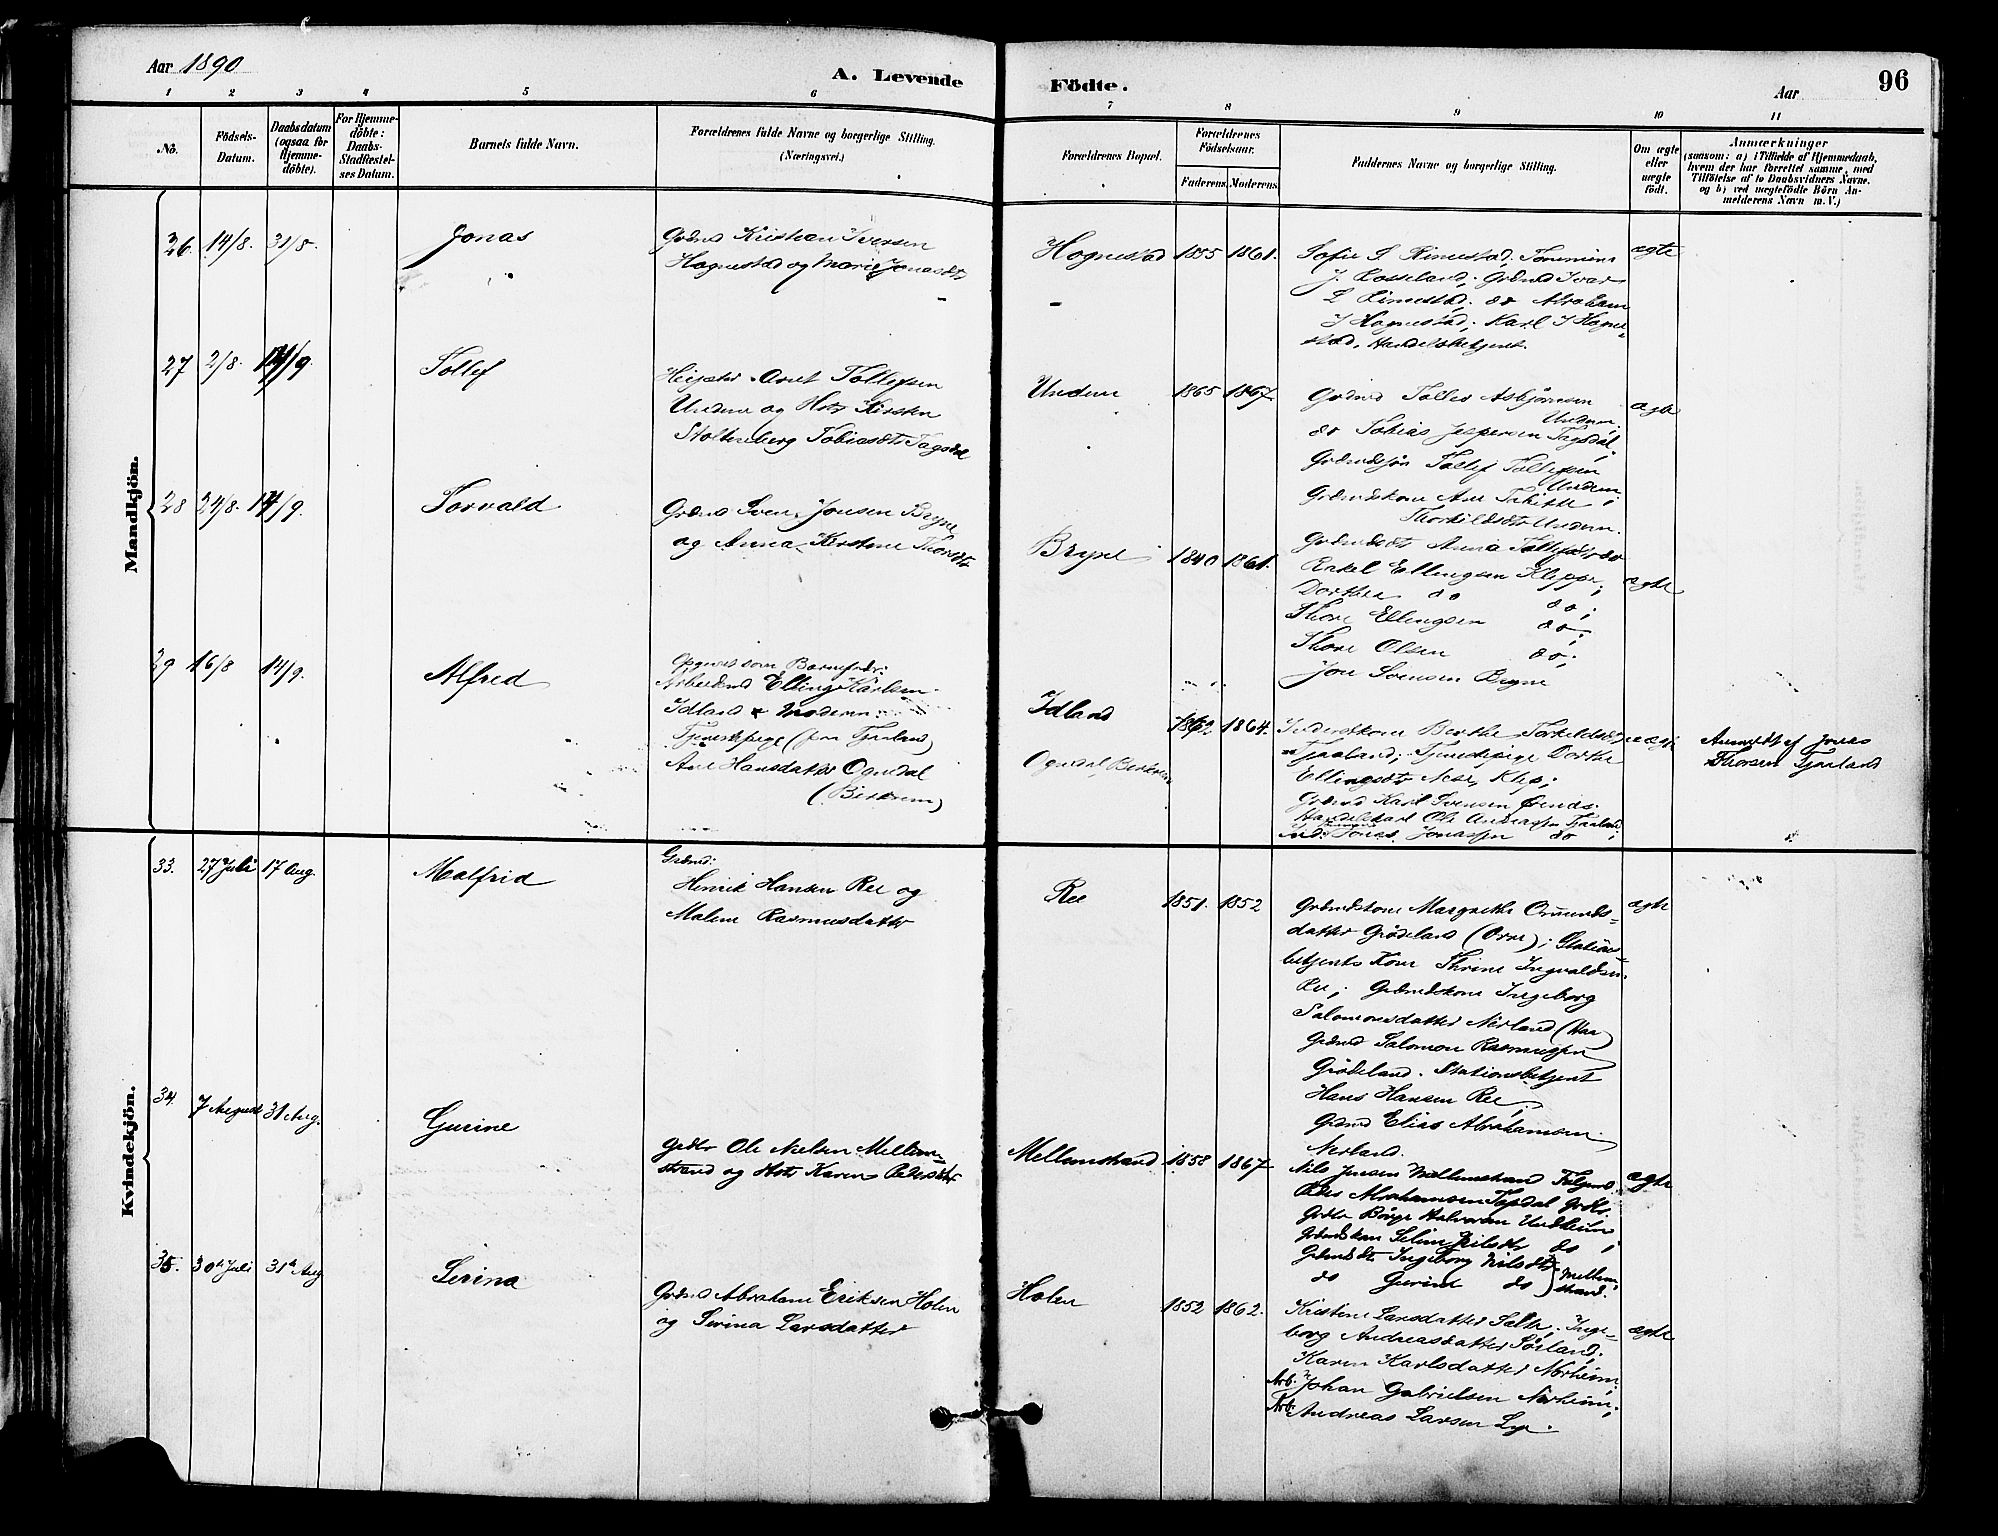 Aar 1890
A. Levende
Födte.
Aar
96
1 2 3 4 5 6 7 8 9 10 11
No.
Födsels-
Datum.
Daabsdatum
(ogsaa for
Hjemme-
döbte).
For Hjemme-
döbte:
Daabs-
Stadfæstel-
ses Datum.
Barnets fulde Navn.
Forældrenes fulde Navne og borgerlige Stilling.
(Næringsvei.)
Forældrenes Bopæl.
Forældrenes
Födselsaar.
Faderens. Moderens.
Faddernes Navne og borgerlige Stilling.
Om ægte
eller
uægte
födt.
Anmærkninger
(saasom: a) i Tilfælde af Hjemmedaab,
hvem der har forrettet samme, med
Tilföielse af to Daabsvidners Navne,
og b) ved uægtefödte Börn An-
melderens Navn m. V.)
Mandkjön.
26. 14/8. 31/8. Jonas
Grdmd Kristian Iversen
Hognestad og Marie Jonasdtr
Hognestad 1855 1861.
Sofie L Rimestad, Tonemine
J. Rosseland; Grdmd Ivar
L Rimestad; do Abraham
I Hognestad; Karl I Hogne-
stad, Handelsbetjent.
ægte
27 2/8. 14/9. Tollef
Arnt Tollefsen
Undem og Hstr Kirsten
Stoltenberg Tobiasdtr Tagsdal
Undem 1865 1867.
Grdmd Tolles Asbjørnsen
Undem;
do Tobias Jespersen Tagsdal;
Grdmdssøn Tollef Tollefsen
Undem;
Grdmdskone Ane Tabitha
Thorkildsdtr Undem.
Grdmdsdtr Anna Tollefsdtr do
ægte
28 24/8. 14/9. Torvald
Grdmd Sven Jonsen Bryne
og Anna Kirstine Thorsdtr
Bryne 1840 1861.
Rakel Ellingsen Kleppe;
Dorthea do do;
Thore Ellingsen do;
Thore Olsen do;
Jon Svensen Bryne
ægte
29 16/8 14/9. Alfred
Opgivet som Barnefader:
Arbeidsmd Elling Karlsen
Idland & Moderen:
Tjenestepige (paa Tjaaland)
Ane Hansdatter Ognedal
(Birkrem)
Idland
Ognedal, Birkrem
1862 1864.
Berthe Torkelsdtr
Tjaaland; Tjenestepige Dorthe
Ellingsdtr Nese, Klep;
Grdmd Karl Svensen
Handelskarl Ole Andreassen Tjaaland;
Jonas Jonassen do
uægte
Anmeldt af Jonas
Thorsen Tjaaland
Kvindekjön.
33. 27 Juli 17 Aug. Malfrid
Grdmd:
Henrik Hansen Ree og
Malene Rasmusdatter
Ree 1851. 1852
Grdmdskone Margrethe Omunds-
datter Grødeland (Orre); Stations-
betjents Kone Thrine Ingvaldsen
Ree; Grdmdskone Ingeborg
Salomonsdatter Nerland (Haa)
Grdmd Salomon Rasmussen
Grødeland. Stationsbetjent
Hans Hansen Ree
Grdmd Elias Abrahamsen
Nerland.
ægte
34. 7 August 31 Aug. Gurine
Grdbr Ole Nielsen Mellem-
strand og Hstr Karen Pedersdtr
Mellemstrand 1858 1867
Nils Jensen Mellemstrand
Peder Abrahamsen Tagsdal Grdbr.
Grdbr Børge Halvorsen Undheim
Grdmdskone Seline Nilsdtr do;
Grdmdsdtr Ingeborg Nilsdtr
do Gurine do } Mellem-
strand.
ægte
35. 30te Juli 31te Aug Serina
Grdmd Abraham Eriksen Holen
og Serina Larsdatter
Holen 1852 1862.
Kristene Larsdatter Salte; Inge-
borg Andreasdatter Sørland;
Karen Karlsdatter Norheim;
Arb. Johan Gabrielsen Norheim;
Arb. Andreas Larsen Lye.
ægte